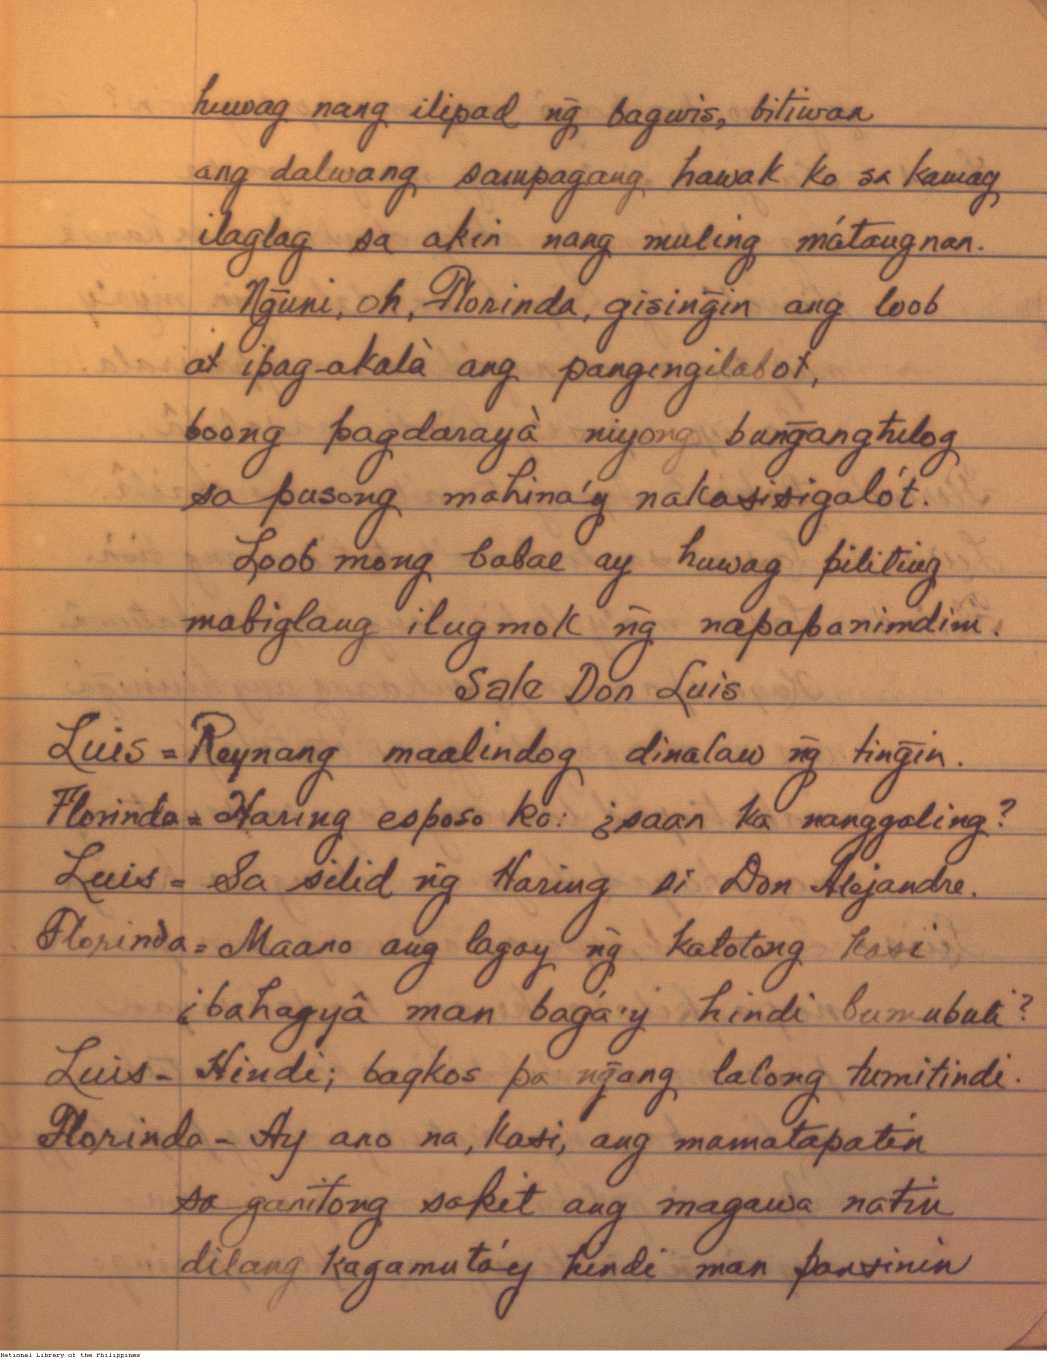 huwag nang ilipad ng̃ bagwis, bitiwan
ang dalwang sampagang hawak ko sa kamay
ilaglag sa akin nang muling mátaugnan.
Ng̃uni, oh, Florinda, gising̃in ang loob
at ipag-akalà ang pangingilabot,
boong pagdarayà niyong bung̃angtulog
sa pusong mahina'y nakasisigalót.
Loob mong babae ay huwag piliting
mabiglang ilugmok ng̃ napapanimdim.
Sale Don Luis
Luis = Reynang maalindog dinalaw ng̃ ting̃in.
Florinda = Haring esposo ko: ¿saan ka nanggaling?
Luis = Sa silid ng̃ Haring si Don Alejandre.
Florinda = Maano ang lagay ng̃ katotong kasi
¿bahagyâ man bagá'y hindi bumubuti?
Luis - Hindi; bagkos pa ng̃ang lalong tumitindi.
Florinda - Ay ano na, kasi, ang mamatapatín
sa ganitong sakit ang magawa natin
dilang kagamutá'y hindi man pansinin
National Library of the Philippines